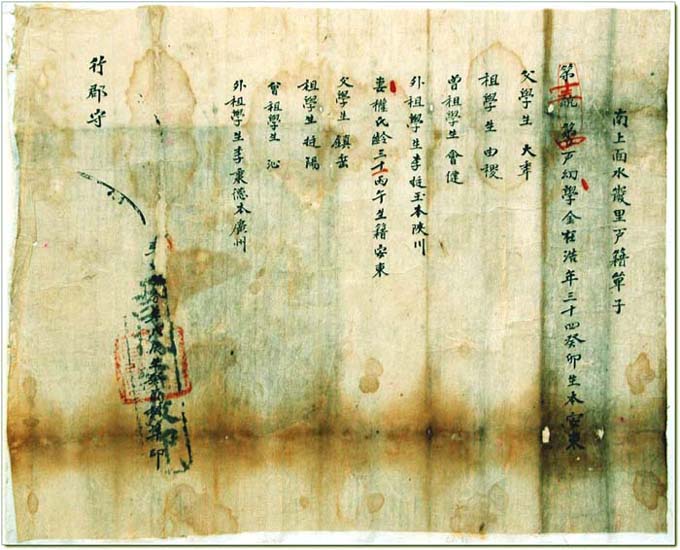 南上面水巖里戶籍單子
第 統 第 戶幼學金 浩年三十四癸卯生本安東
父學生 大
祖學生 由稷
曾祖學生 會健
外祖學生李 玉本陜川
妻權氏齡三十一丙午生籍安東
父學生 鎮岳
祖學生 陽
曾祖學生 沁
外祖學生李秉德本廣州
行郡守